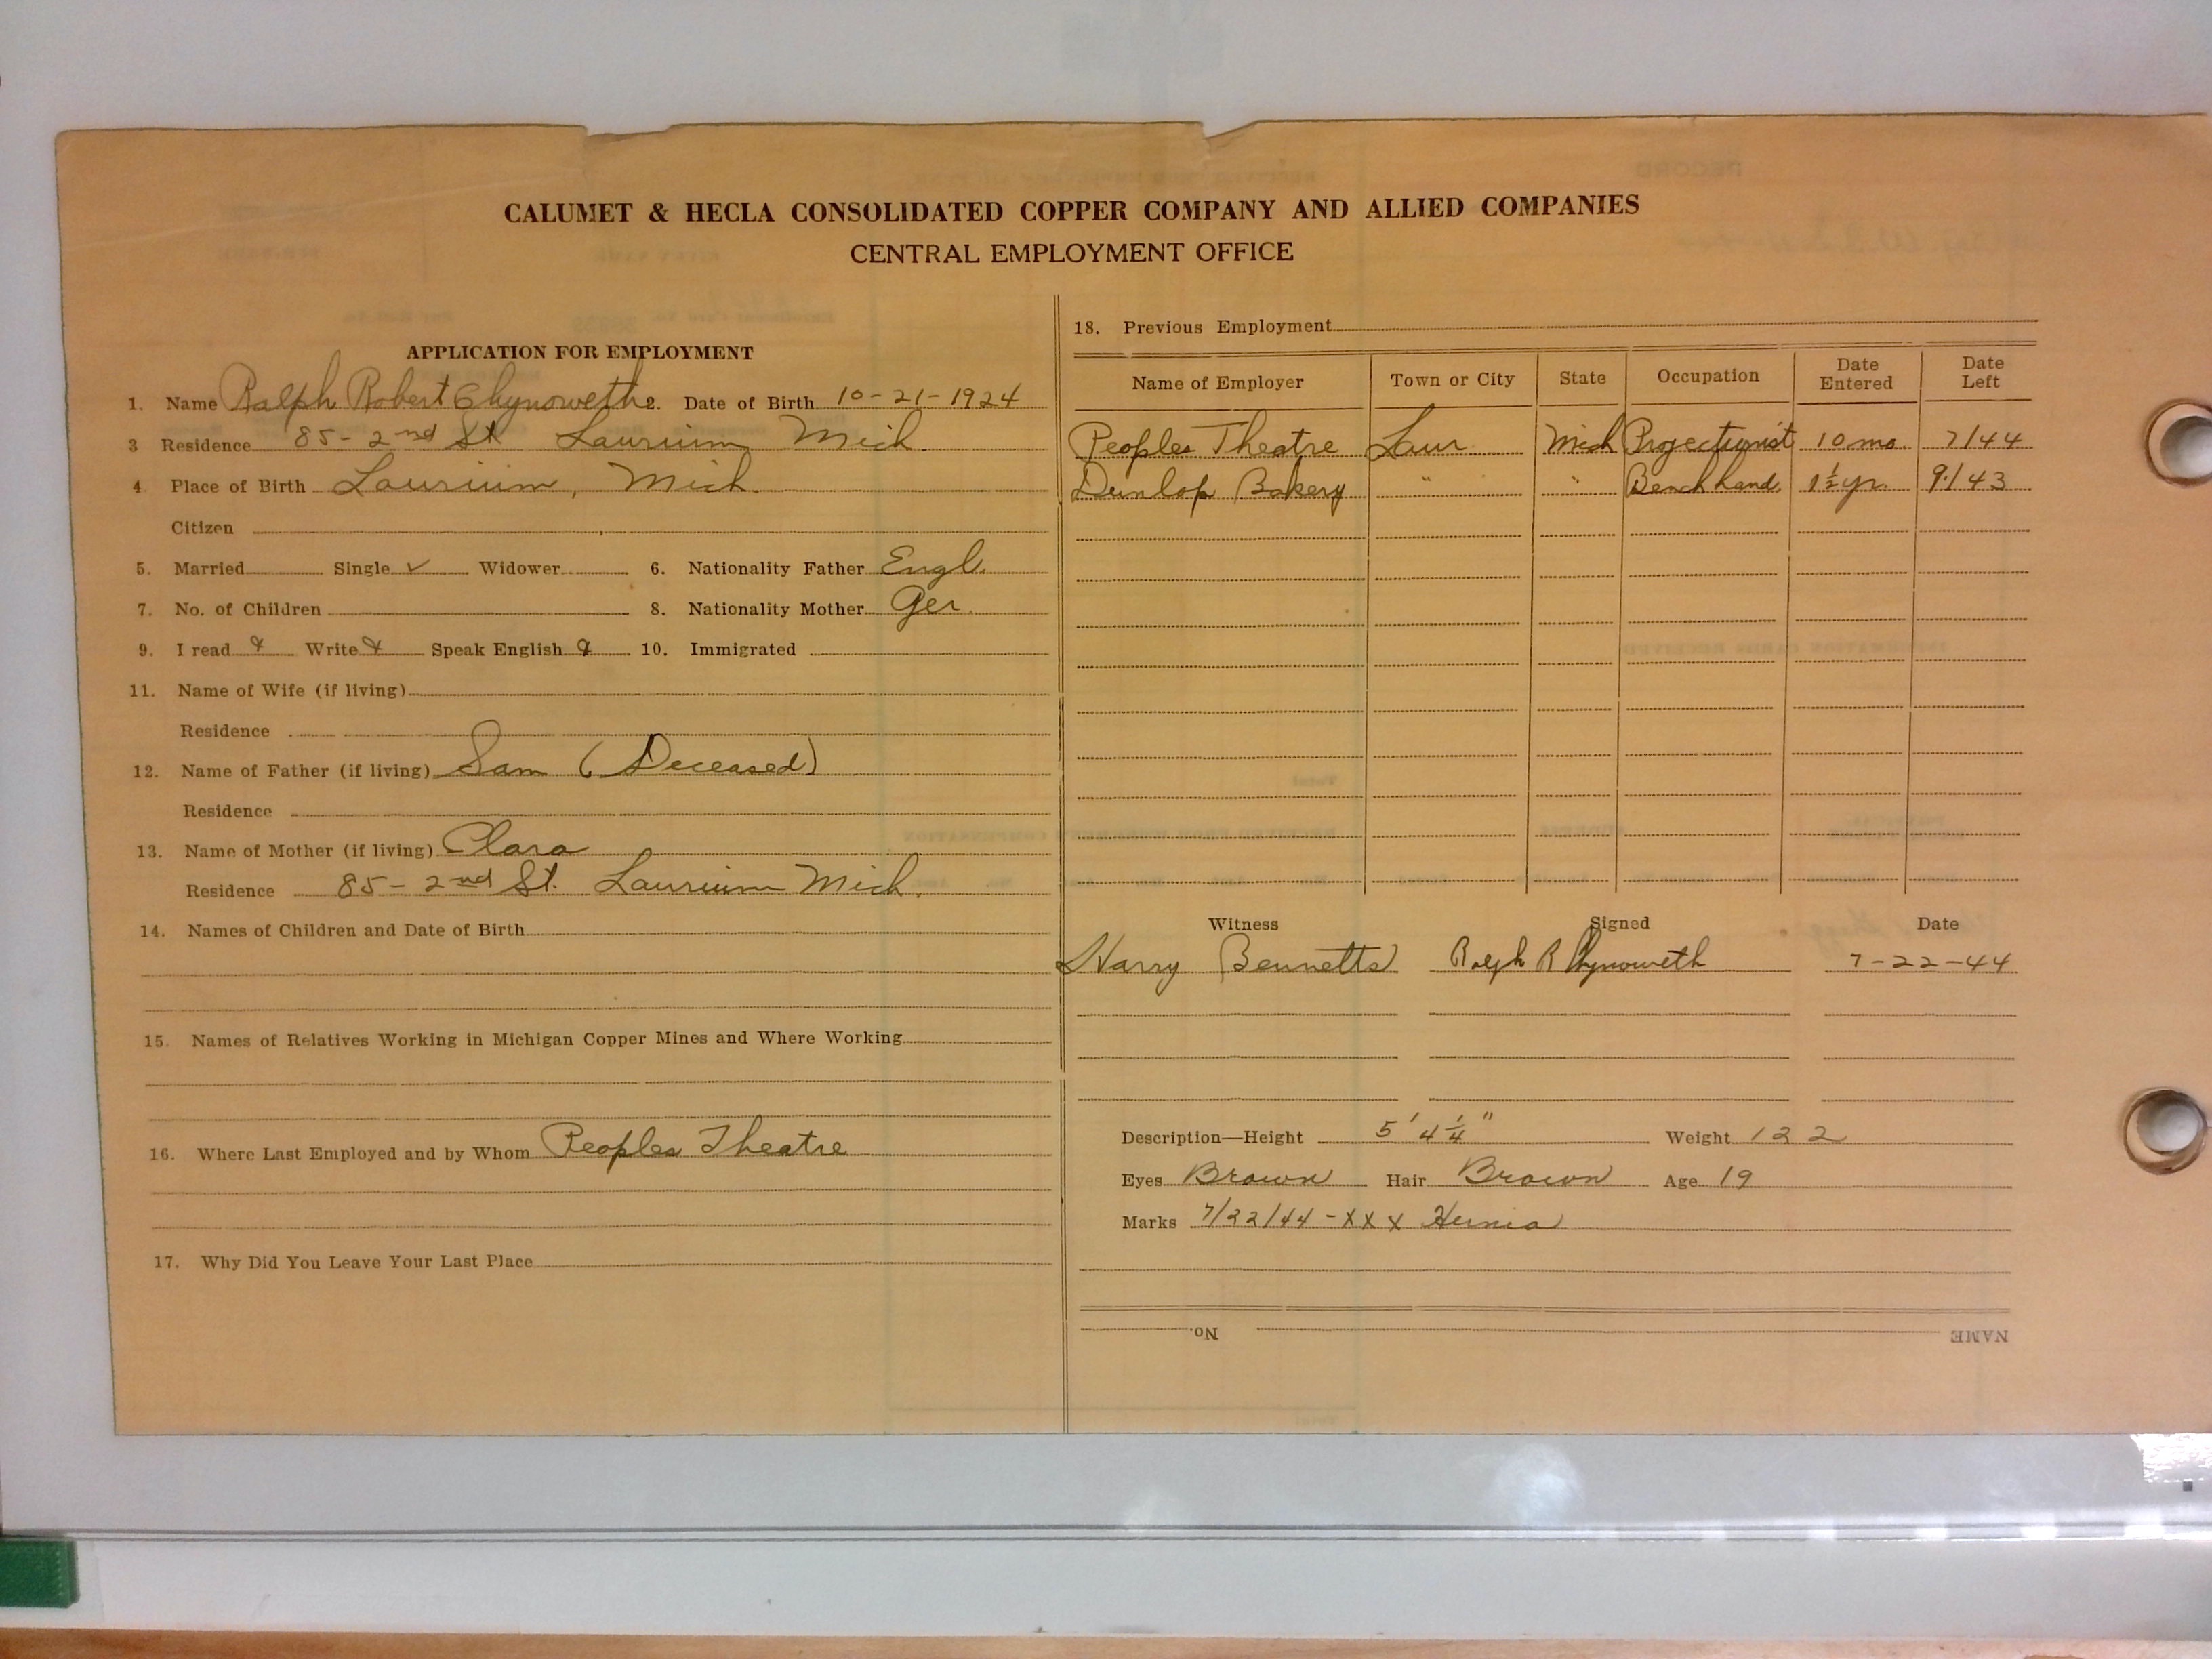 CALUMET & HECLA CONSOLIDATED COPPER COMPANY AND ALLIED COMPANIES
CENTRAL EMPLOYMENT OFFICE
APPLICATION FOR EMPLOYMENT
1. Name Ralph Robert Chynoweth 2. Date of Birth 10-21-1924
3 Residence 85-2nd St Laurium Mich.
4 Place of Birth Laurium, Mich.
Citizen
5. Married Single ✓ Widower 6. Nationality Father Engl.
7. No. of Children 8. Nationality Mother Ger.
9. I read Write Speak English 10. Immigrated
11. Name of Wife (if living)
Residence
12. Name of Father (if living) Sam (Deceased)
Residence
13. Name of Mother (if living) Clara
Residence 85-2nd St. Laurium Mich.
14. Names of Children and Date of Birth
15. Names of Relatives Working in Michigan Copper Mines and Where Working
16. Where Last Employed and by Whom Peoples Theatre
17. Why Did You Leave Your Last Place
18. Previous Employment
Name of Employer Town or City State Occupation Date Entered Date Left
Peoples Theatre Laur Mich Projectionist 10 mo. 7/44
Dunlop Bakery " " Bench hand 1½ yr. 9/43
Witness Signed Date
Harry Bennetts Ralph R Chynoweth 7-22-44
Description—Height 5' 4¼" Weight 122
Eyes Brown Hair Brown Age 19
Marks 7/22/44 - X X X Hernia
NAME No.